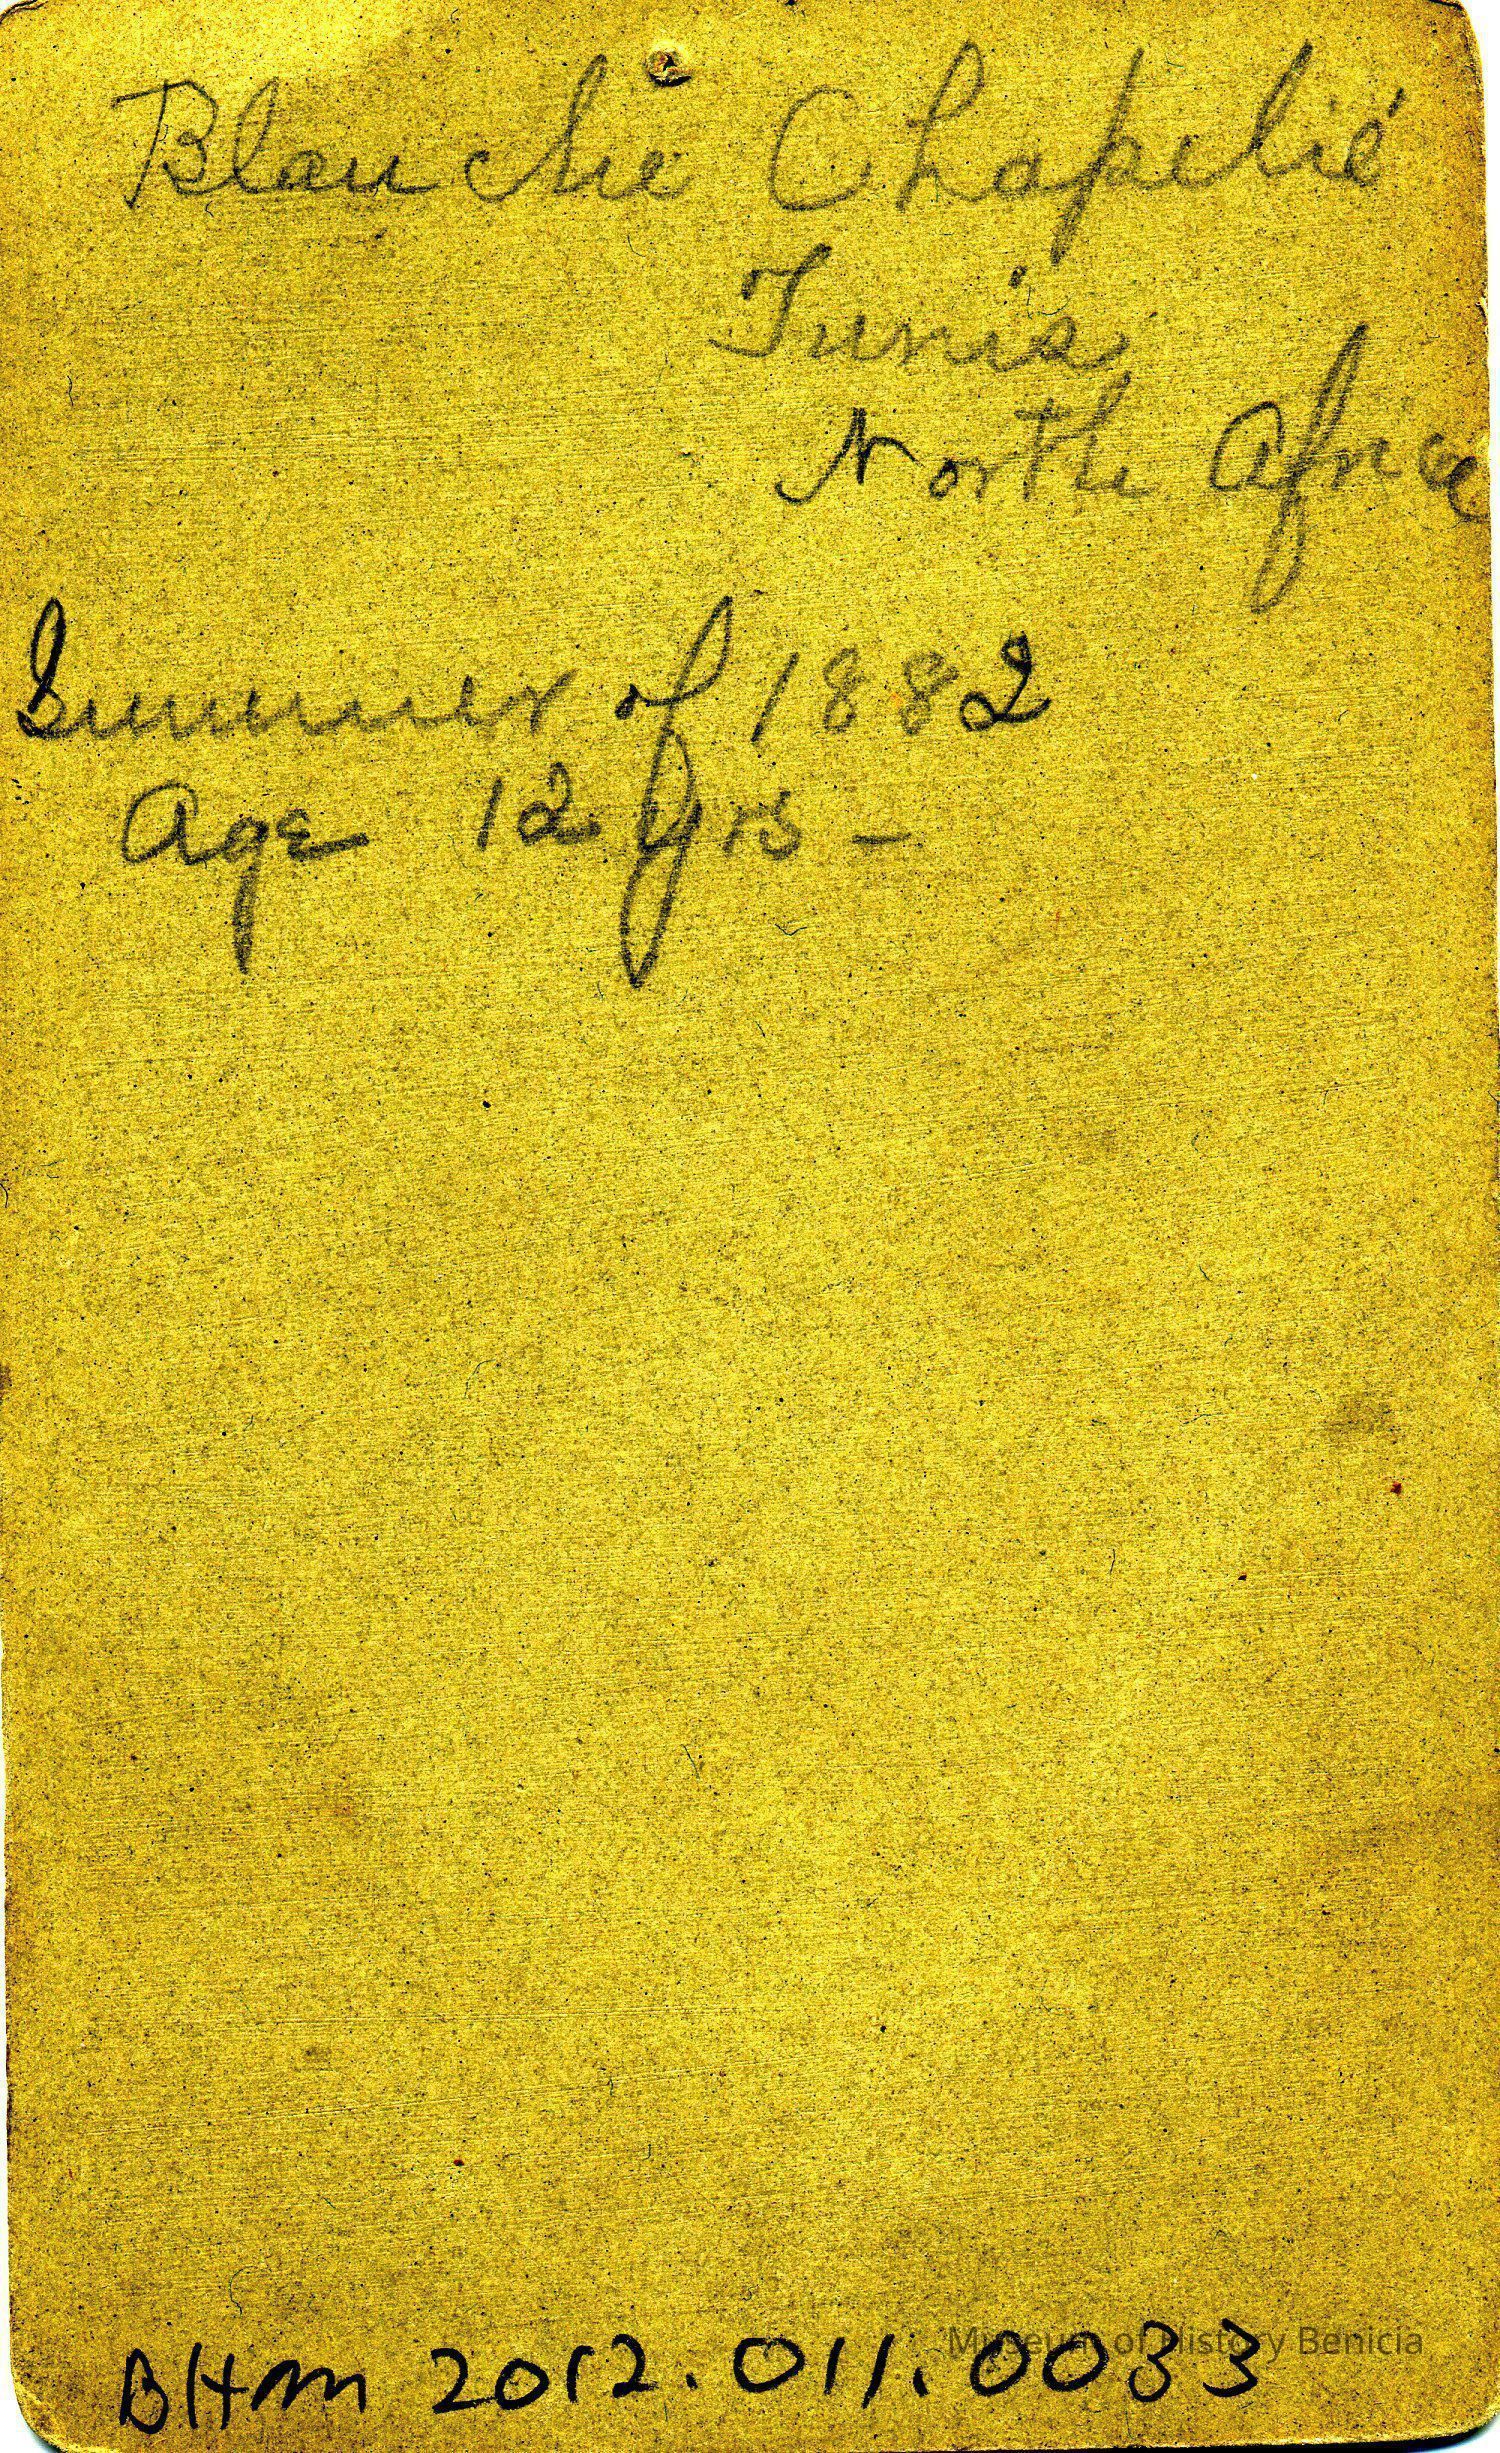 Blanche Chapelié
Tunis
North Africa
Summer of 1882
Age 12 yrs –
Museum of History Benicia
BHM 2012.011.0033